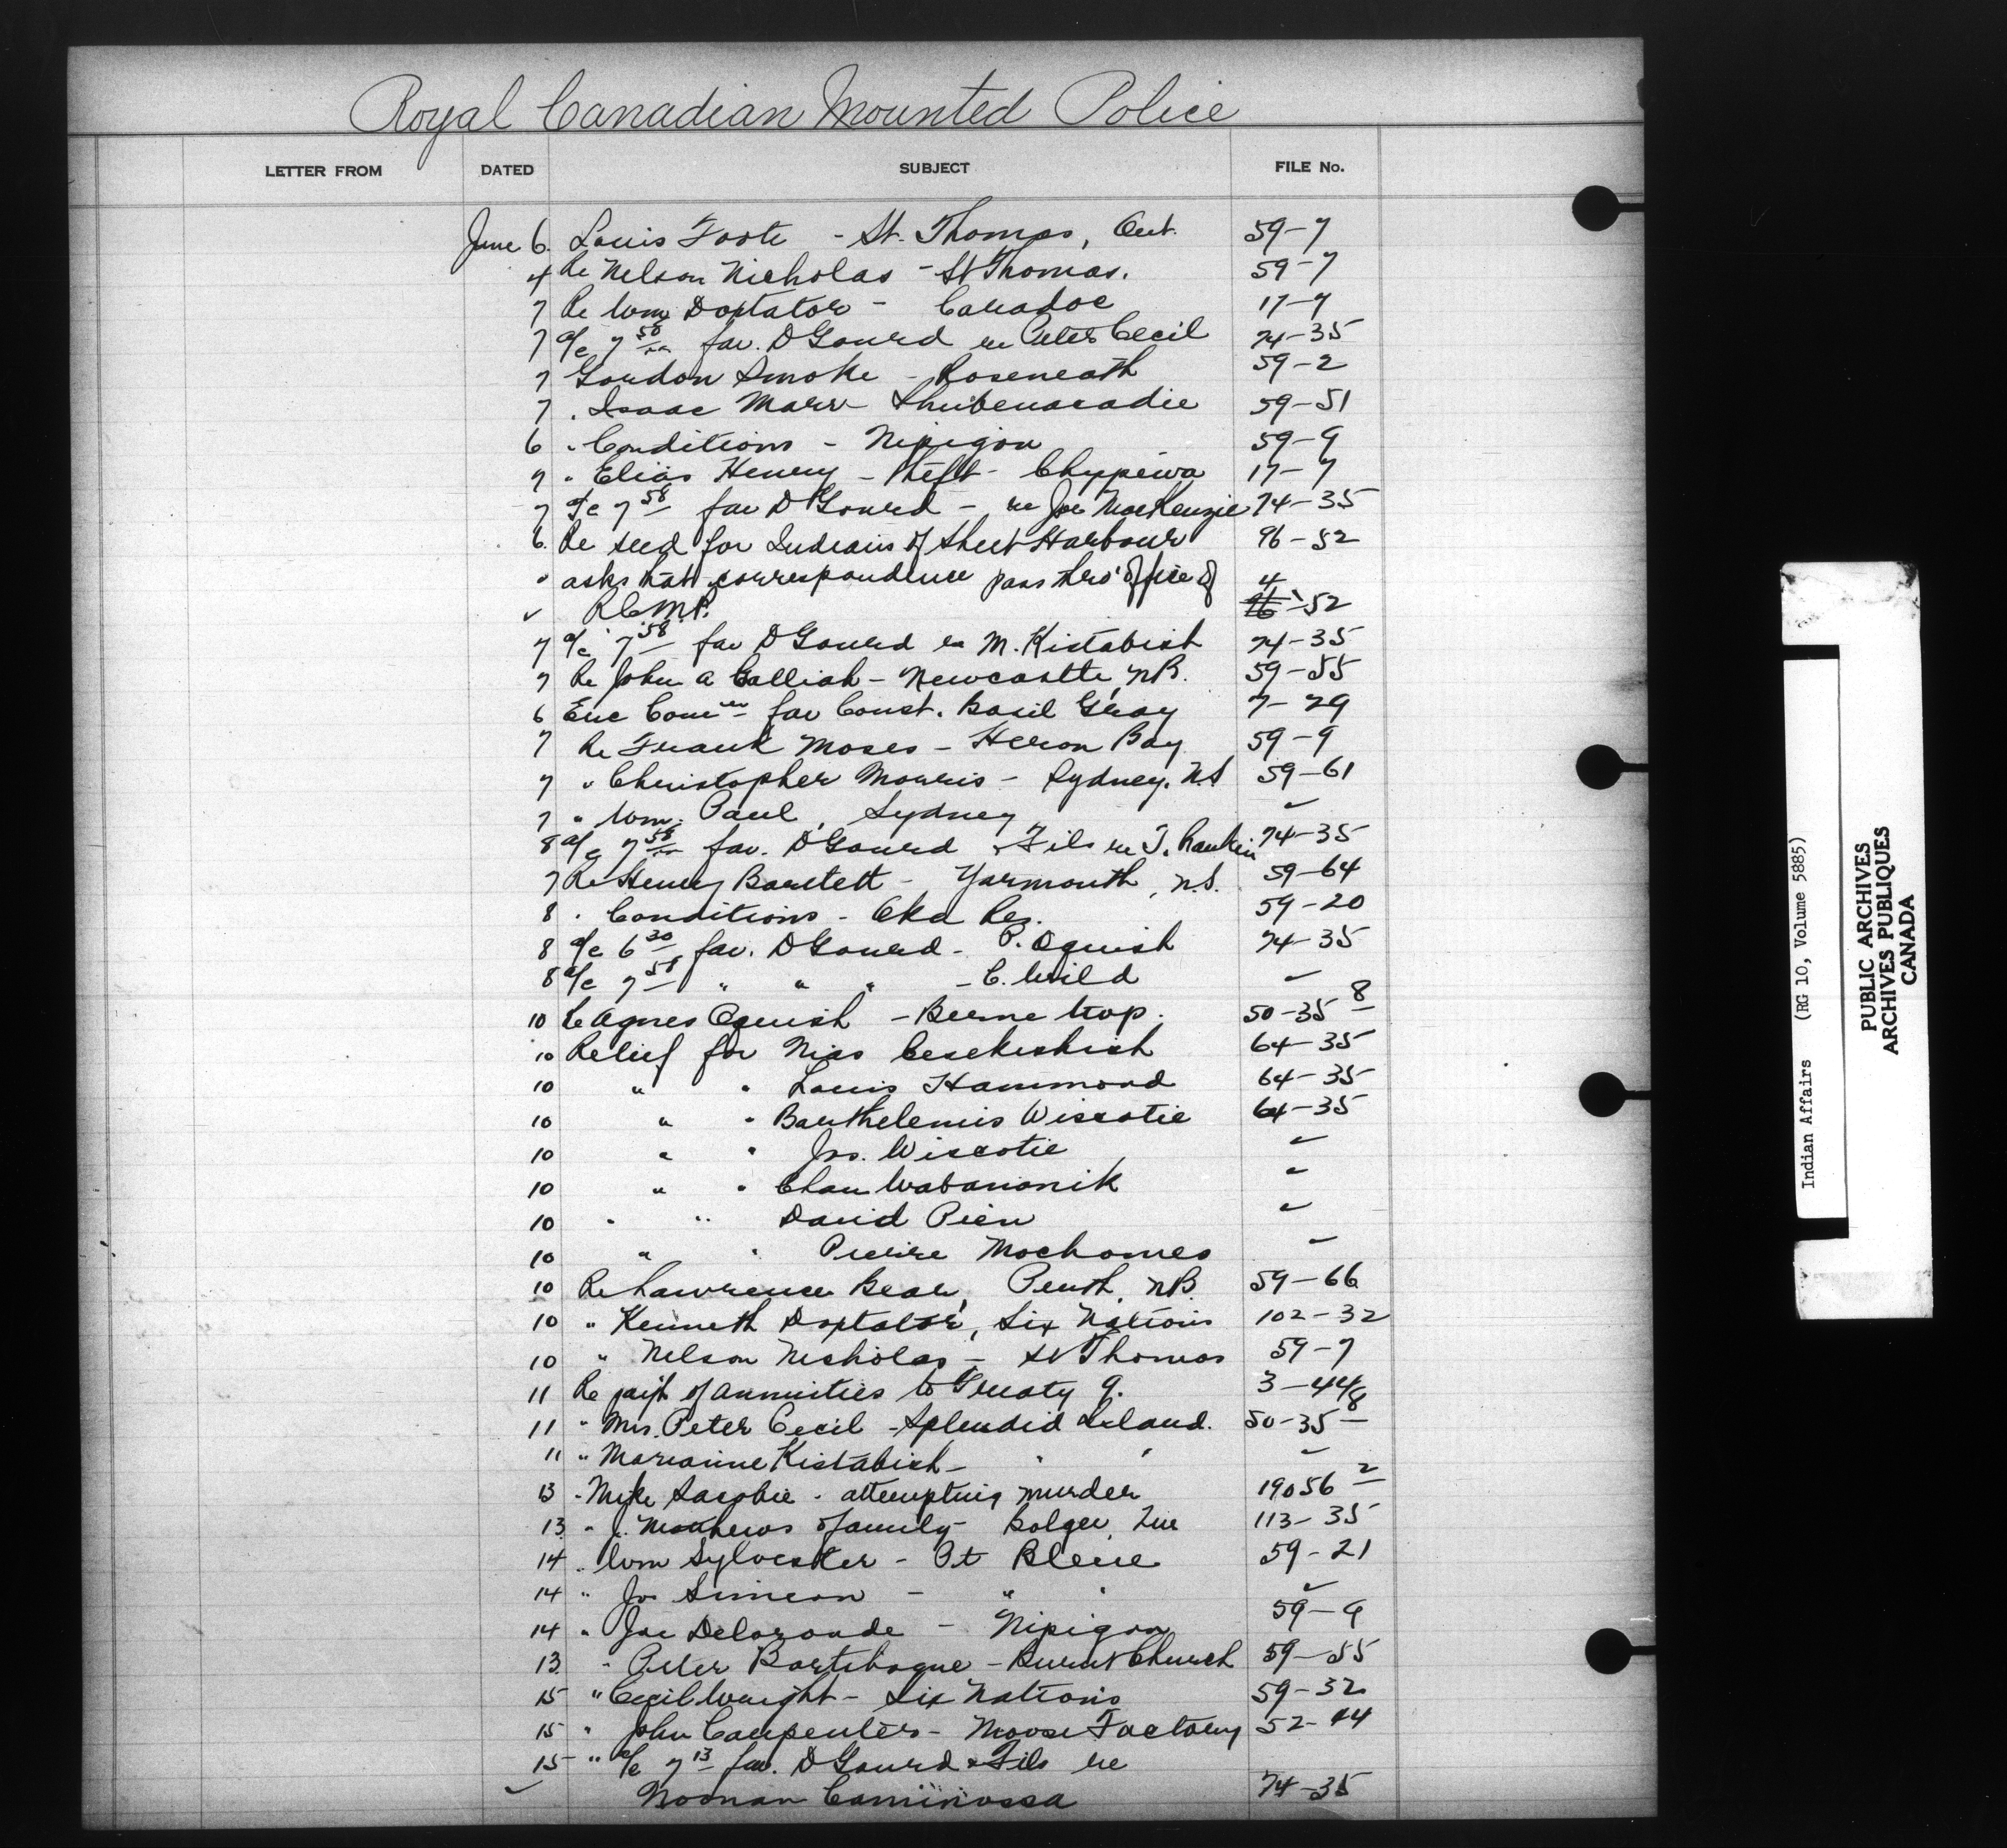 Royal Canadian Mounted Police
LETTER FROM DATED SUBJECT FILE No.
June 6. Louis Foote - St. Thomas, Ont. 59-7
4 Re Nelson Nicholas - St Thomas. 59-7
7 Re Wm Doxtator - Caradoc 17-7
7 a/c 7 58 fav. D Gourd re Peter Cecil 74-35
7 Gordon Smoke - Roseneath 59-2
7 " Isaac Marr Shubenacadie 59-51
6 " Conditions - Nipigon 59-9
7 " Elias Henry - theft - Chippewa 17-7
7 a/c 7 58 fav D Gourd - re Joe MacKenzie 74-35
6. Re seed for Indians of Sheet Harbour 96-52
" asks that correspondence pass thro' office of 4
✓ R.C.M.P. 96-52
7 a/c 7 58 fav D Gourd re M. Kistabish 74-35
7 Re John A Galliah - Newcastle, N.B. 59-55
6 Enc Com'n for Const. Basil Gray 7-29
7 Re Frank Moses - Heron Bay 59-9
7 " Christopher Morris - Sydney. N.S 59-61
7 " Wm. Paul, Sydney ✓
8 a/c 7 58 fav. D Gourd & Fils re T. Rankin 74-35
7 Re Henry Bartlett - Yarmouth, N.S. 59-64
8 " Conditions - Oka Res. 59-20
8 a/c 6 30 fav. D Gourd - P. Oguish 74-35
8 a/c 7 58 " " " - C. Wild ✓
10 Re Agnes Oguish - Berne twp. 50-35 8
10 Relief for Nias Cesekishish 64-35
10 " " Louis Hammond 64-35
10 " " Barthelemis Wiscotie 64-35
10 " " Jos. Wiscotie ✓
10 " " Chan Wabanonik ✓
10 " " David Pien ✓
10 " " Pierre Mochomes ✓
10 Re Lawrence Bear, Perth, N.B. 59-66
10 " Kenneth Doxtator, Six Nations 102-32
10 " Nelson Nicholas - St Thomas 59-7
11 Re pay't of annuities to Treaty 9. 3-44/8
11 " Mrs. Peter Cecil - Splendid Island. 50-35 8
11 " Marianne Kistabish - " " ✓
13 " Mike Sacobie - attempting murder 19056 2
13 " J. Mathews & family - Bolger, Que 113-35
14 " Wm Sylvester - Pt Bleue 59-21
14 " Jos Simeon - " " ✓
14 " Joe Deloronde - Nipigon 59-9
13 " Peter Bartibogue - Burnt Church 59-55
15 " Cecil Wright - Six Nations 59-32
15 " John Carpenter - Moose Factory 52-44
15 " a/c 7 13 fav. D Gourd & Fils re
✓ Noonan Caminossa 74-35
Indian Affairs (RG 10, Volume 5885)
PUBLIC ARCHIVES
ARCHIVES PUBLIQUES
CANADA